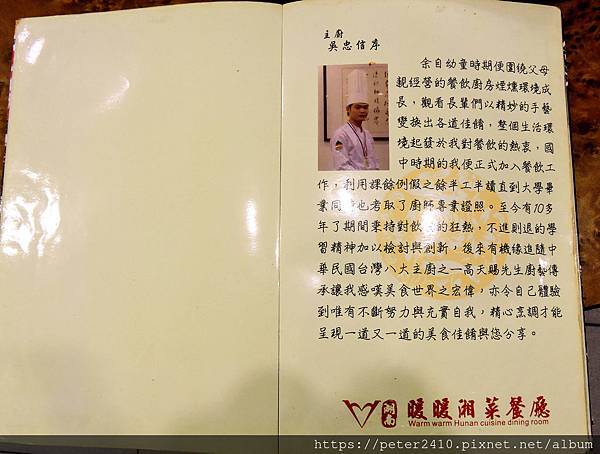 主廚
吳忠信序
余自幼童時期便圍繞父母
親經營的餐飲廚房煙燻環境成
長，觀看長輩們以精妙的手藝
變換出各道佳餚，整個生活環
境起發於我對餐飲的熱衷，國
中時期的我便正式加入餐飲工
作，利用課餘例假之餘半工半讀直到大學畢
業同時也考取了廚師專業證照。至今有10多
年了期間秉持對飲食的狂熱，不進則退的學
習精神加以檢討與創新，後來有機緣追隨中
華民國台灣八大主廚之一高天賜先生廚藝傳
承讓我感嘆美食世界之宏偉，亦令自己體驗
到唯有不斷努力與充實自我，精心烹調才能
呈現一道又一道的美食佳餚與您分享。
湖南 暖暖湘菜餐廳
Warm warm Hunan cuisine dining room
https://peter2410.pixnet.net/album